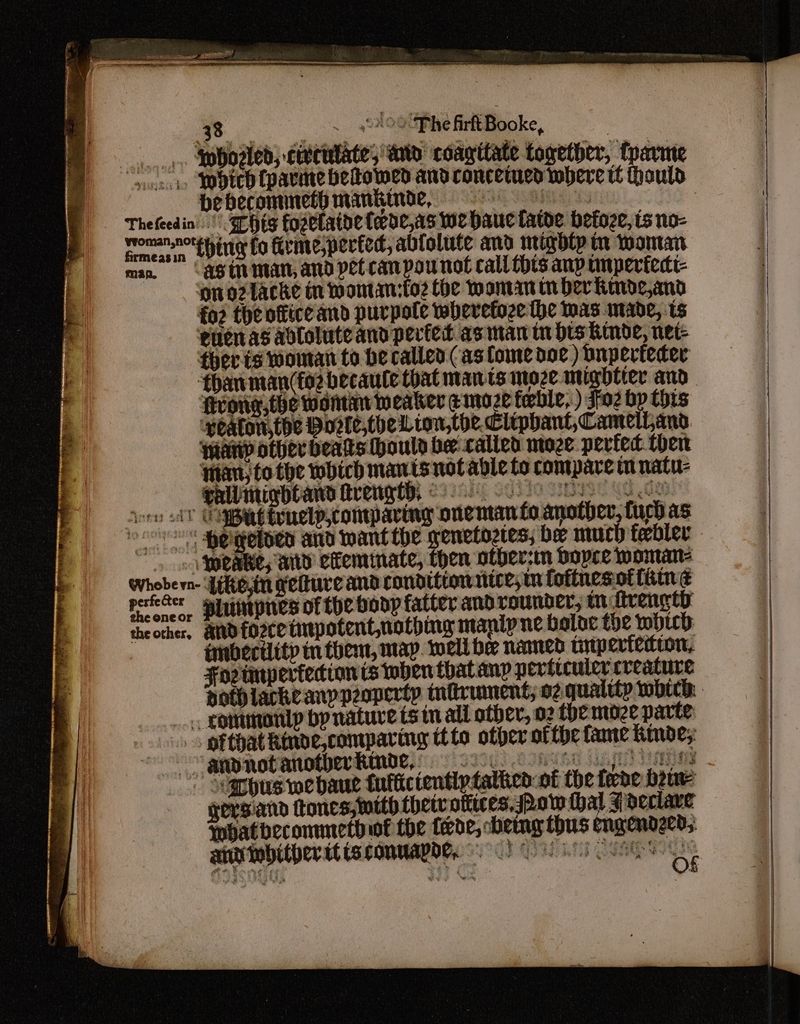 38 The first Booke,
whorled, circulate, and coagitate together, sparme
which sparme bestowed and conceiued where it should
be becommeth mankinde.
The seed in
woman, not
firme as in
man.
This foresaide seede, as we haue saide before, is no-
thing so firme, perfect, absolute and mighty in woman
as in man, and yet can you not call this any imperfecti-
on or lacke in woman: for the woman in her kinde, and
for the office and purpose wherefore she was made, is
euen as absolute and perfect as man in his kinde, nei-
ther is woman to be called (as some doe) vnperfecter
than man (for because that man is more mightier and
strong, the woman weaker & more feeble.) For by this
reason, the Horse, the Lion, the Eliphant, Camell, and
many other beasts should bee called more perfect then
man, to the which man is not able to compare in natu-
rall might and strength.
But truely, comparing one man to another, such as
be gelded and want the genetories, bee much feebler
weake, and effeminate, then other: in voyce woman-
Who be vn-
perfecter
the one or
the other.
like, in gesture and condition nice, in softnes of skin &
plumpnes of the body fatter and rounder, in strength
and force impotent, nothing manly ne bolde the which
imbecility in them, may well bee named imperfection.
For imperfection is when that any perticuler creature
doth lacke any property instrument, or quality which
commonly by nature is in all other, or the more parte
of that kinde, comparing it to other of the same kinde,
and not another kinde.
Thus we haue sufficiently talked of the seede brin-
gers and stones, with their offices. Now shal I declare
what becommeth of the seede, being thus engendred,
and whither it is conuayde.
Of